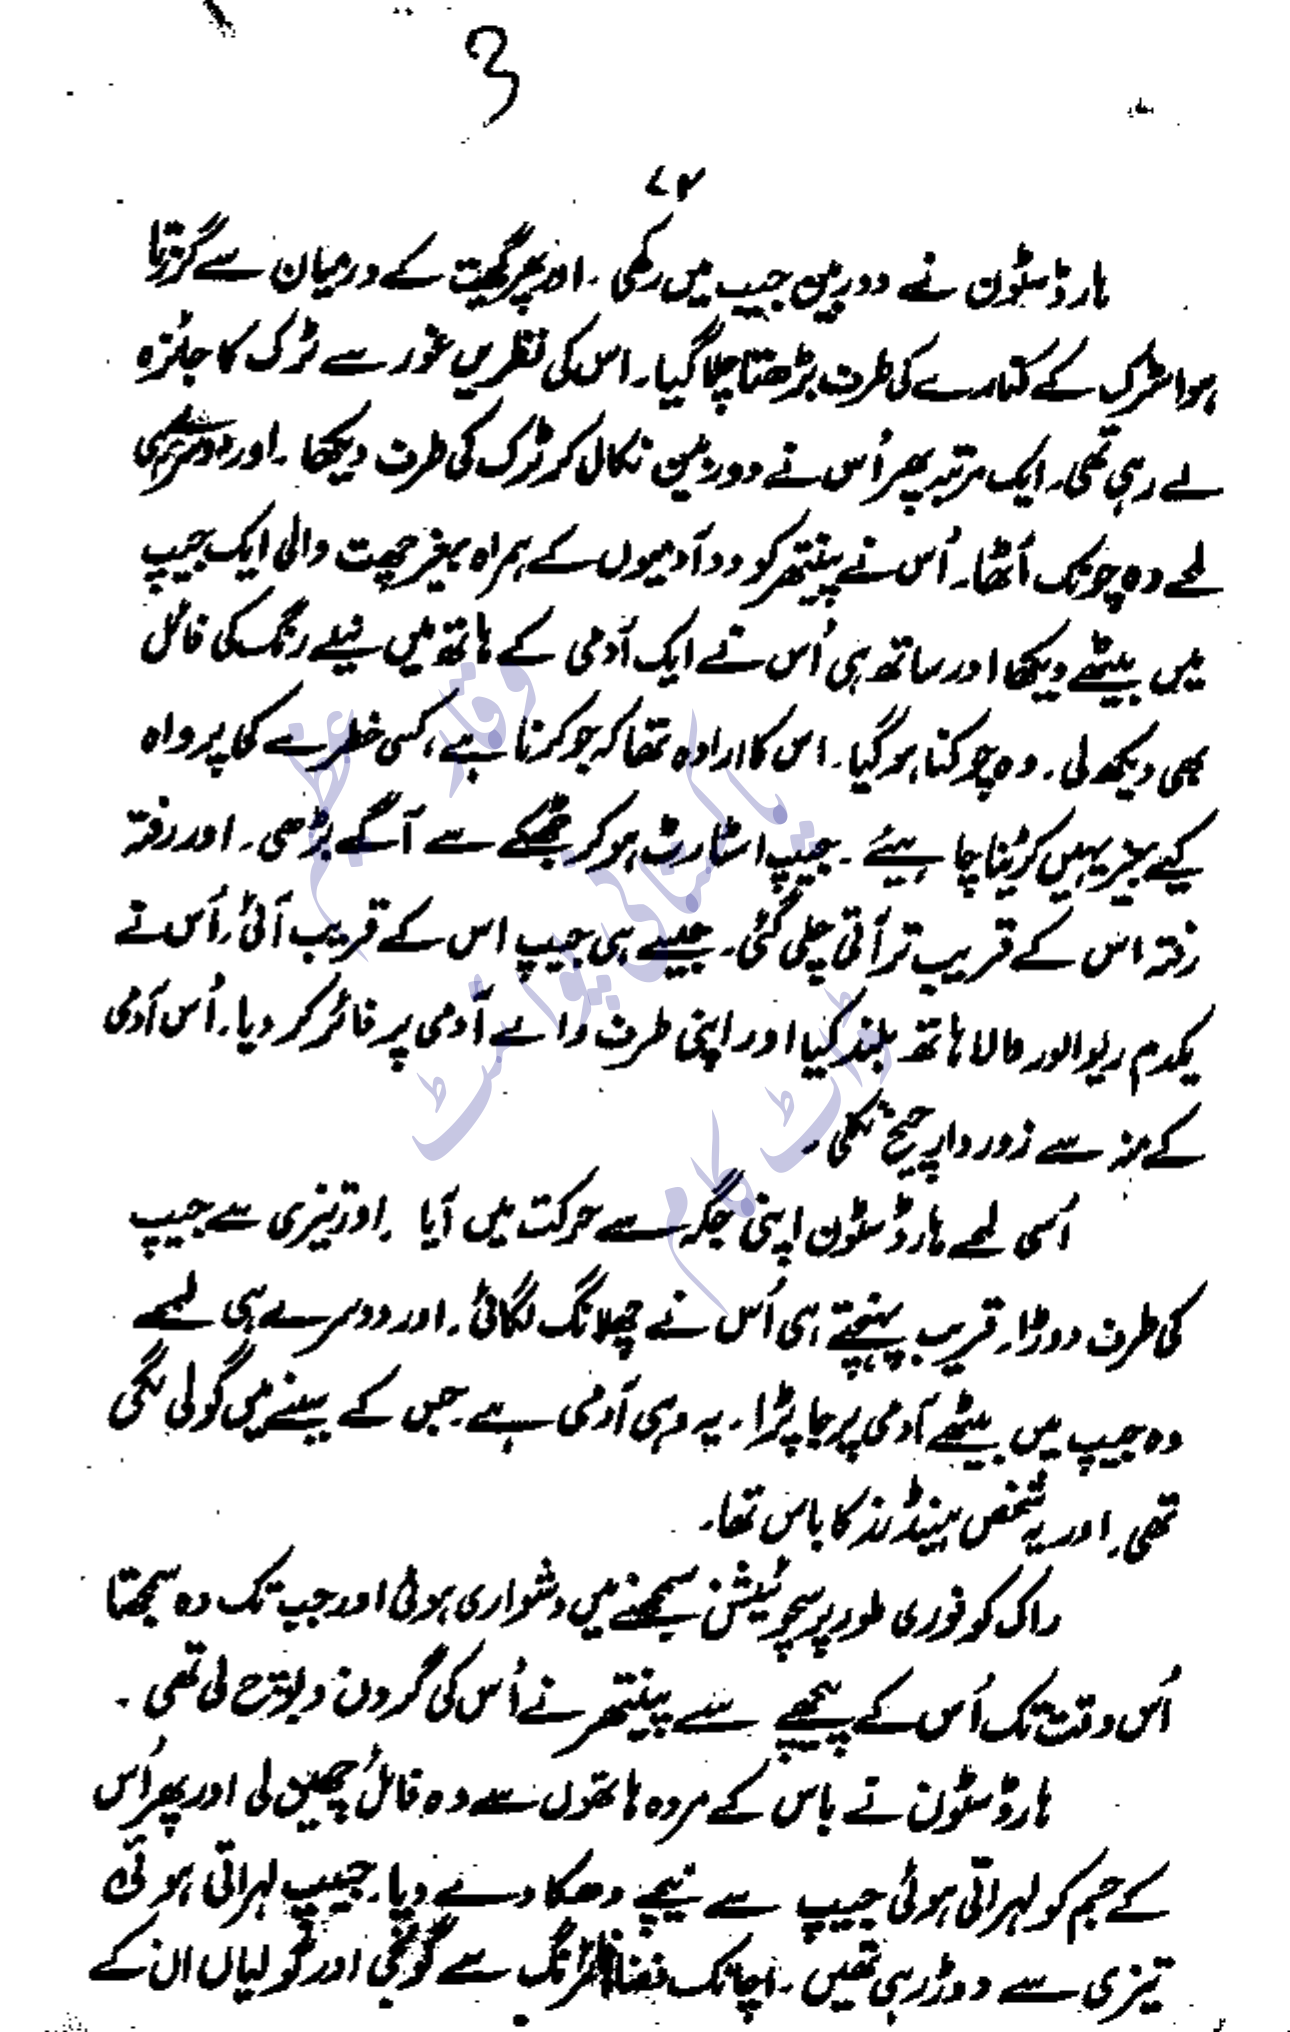 3
۷۴
ہارڈسٹون نے دوربین جیب میں رکھی۔ اور پھر کھیت کے درمیان سے گزرتا
ہوا سڑک کے کنارے کی طرف بڑھتا چلا گیا۔ اس کی نظریں غور سے ٹرک کا جائزہ
لے رہی تھی۔ ایک مرتبہ پھر اُس نے دوربین نکال کر ٹرک کی طرف دیکھا۔ اور دوسرے ہی
لمحے وہ چونک اُٹھا۔ اُس نے پینتھر کو دو آدمیوں کے ہمراہ بغیر چھت والی ایک جیپ
میں بیٹھے دیکھا اور ساتھ ہی اُس نے ایک آدمی کے ہاتھ میں نیلے رنگ کی فائل
بھی دیکھ لی۔ وہ چوکنا ہو گیا۔ اس کا ارادہ تھا کہ جو کرنا ہے، کسی خطرے کا پرواہ
کیے بغیر یہیں کرنا چاہیئے۔ جیپ اسٹارٹ ہو کر جھٹکے سے آگے بڑھی۔ اور رفتہ
رفتہ اس کے قریب تر آتی چلی گئی۔ جیسے ہی جیپ اس کے قریب آئی، اُس نے
یکدم ریوالور والا ہاتھ بلند کیا اور اپنی طرف والے آدمی پر فائر کر دیا۔ اُس آدمی
کے منہ سے زور دار چیخ نکلی۔
اُسی لمحے ہارڈسٹون اپنی جگہ سے حرکت میں آیا۔ اور تیزی سے جیپ
کی طرف دوڑا۔ قریب پہنچتے ہی اُس نے چھلانگ لگائی۔ اور دوسرے ہی لمحے
وہ جیپ میں بیٹھے آدمی پر جا پڑا۔ یہ وہی آدمی ہے۔ جس کے سینے میں گولی لگی
تھی۔ اور یہ شخص بینڈرز کا باس تھا۔
راک کو فوری طور پر سچوئیشن سمجھنے میں دشواری ہوئی اور جب تک وہ سمجھتا
اُس وقت تک اُس کے پیچھے سے پینتھر نے اُس کی گردن دبوچ لی تھی۔
ہارڈسٹون نے باس کے مردہ ہاتھوں سے وہ فائل چھین لی اور پھر اُس
کے جسم کو لہراتی ہوئی جیپ سے نیچے دھکا دے دیا۔ جیپ لہراتی ہوئی
تیزی سے دوڑ رہی تھیں۔ اچانک فضا فائرنگ سے گونجی اور گولیاں ان کے
وقار عظیم
پاکستانی پوائنٹ
ڈاٹ کام